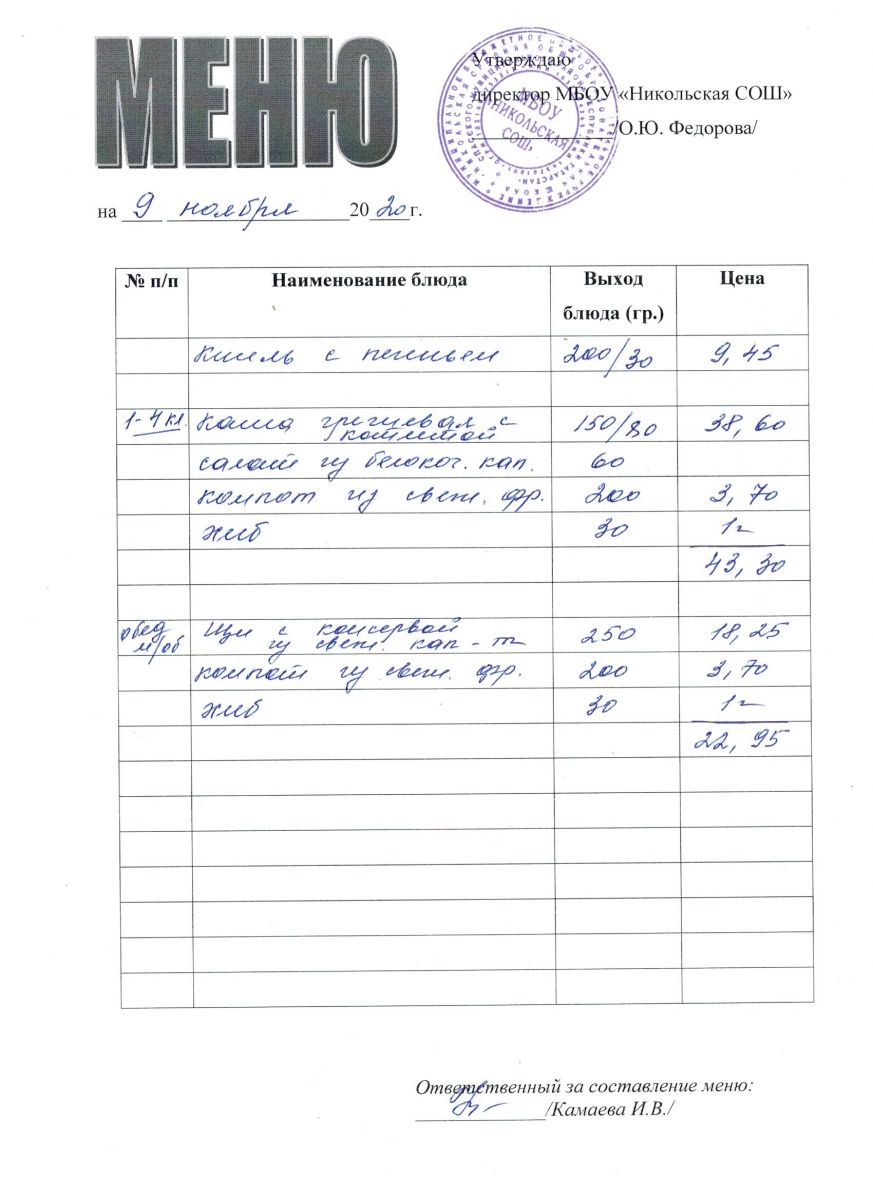 МЕНЮ
Утверждаю
директор МБОУ «Никольская СОШ»
/О.Ю. Федорова/
МБОУ
НИКОЛЬСКАЯ
СОШ
на 9 ноября 2020г.
№ п/п Наименование блюда Выход блюда (гр.) Цена
Кисель с печеньем 200/30 9,45
1-4 кл. Каша гречневая с котлетой 150/80 38,60
салат из белокоч. кап. 60
компот из свеж. фр. 200 3,70
хлеб 30 1=
43,30
обед м/об Щи с консервой из свеж. кап-ты 250 18,25
компот из свеж. фр. 200 3,70
хлеб 30 1=
22,95
Ответственный за составление меню:
/Камаева И.В./